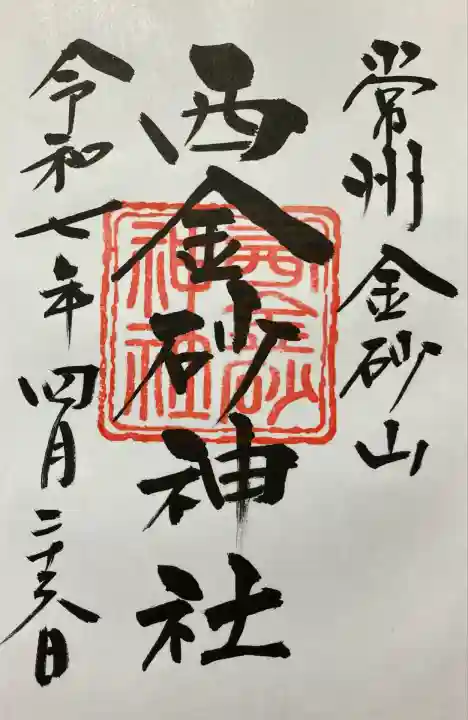 常州 金砂山
西金砂神社
令和七年四月二十六日
西金砂
神社